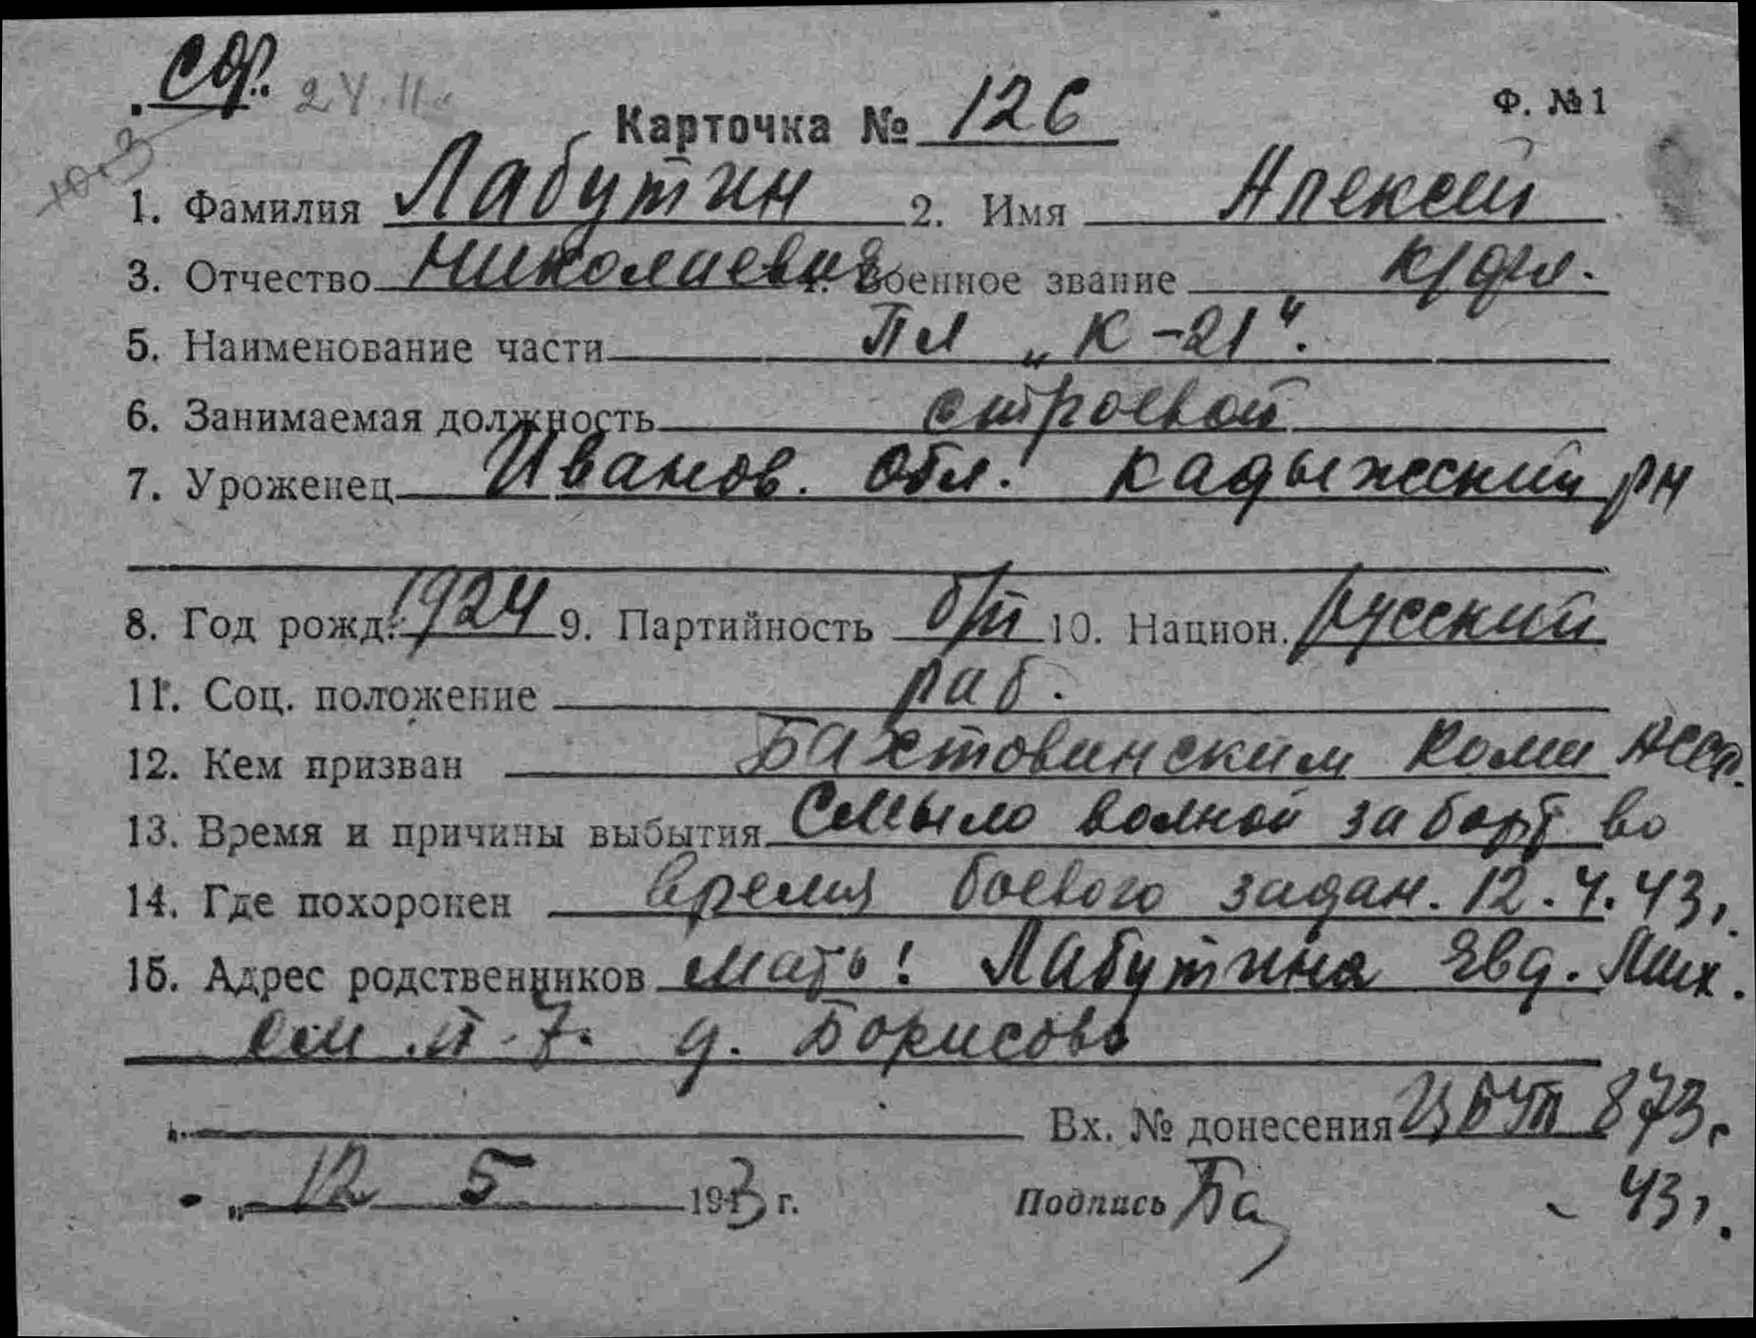 СФ. 24.11.
Карточка № 126 Ф. №1
1. Фамилия Лабутин 2. Имя Алексей
3. Отчество Николаевич 4. Военное звание к/фл.
5. Наименование части Пл „К-21".
6. Занимаемая должность строевой
7. Уроженец Иванов. обл. Кадыжеский рн
8. Год рожд. 1924 9. Партийность б/п 10. Национ. русский
11. Соц. положение раб.
12. Кем призван Бахтовинским Коми АССР.
13. Время и причины выбытия Смыло волной за борт во
14. Где похоронен время боевого задан. 12.4.43г.
15. Адрес родственников мать: Лабутина Евд. Мих.
см. п-7. д. Борисово
Вх. № донесения 873с
„ 12 5 1943 г. Подпись Ба - 43г.